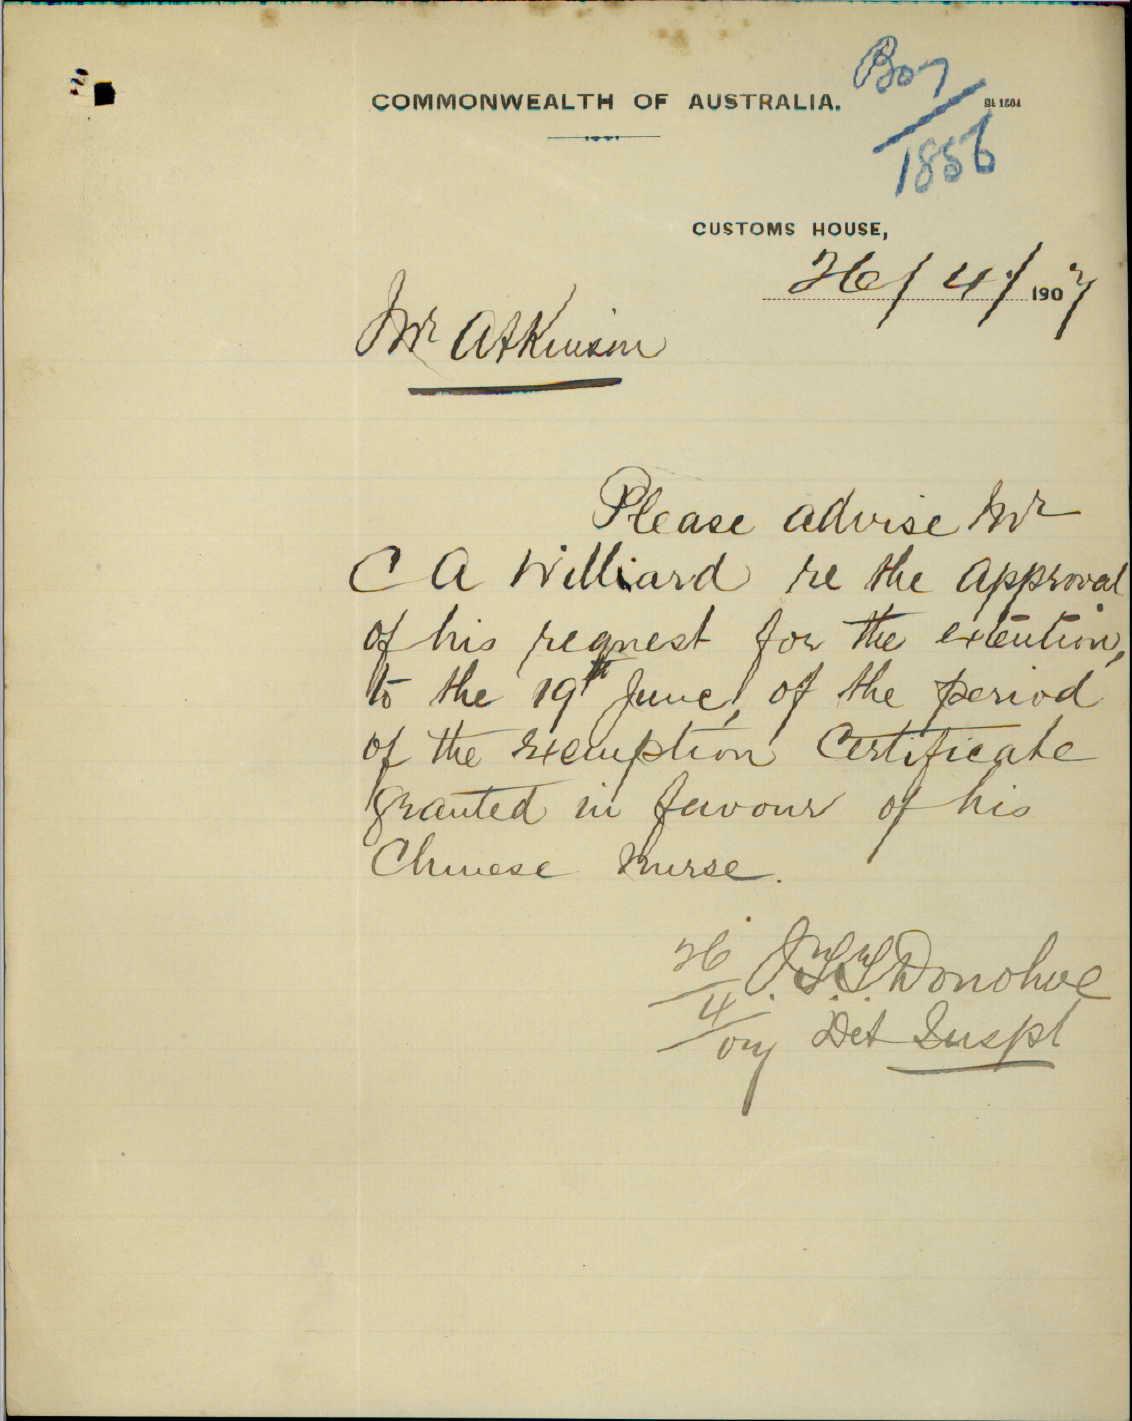 B07
/
1856
COMMONWEALTH OF AUSTRALIA.
CUSTOMS HOUSE,
26/4/1907
Mr Atkinson
Please advise Mr
C A Williard re the approval
of his request for the extention,
to the 19th June, of the period
of the Exemption Certificate
granted in favour of his
Chinese Nurse.
26/4/07 J.T.T. Donohoe
Det Inspt